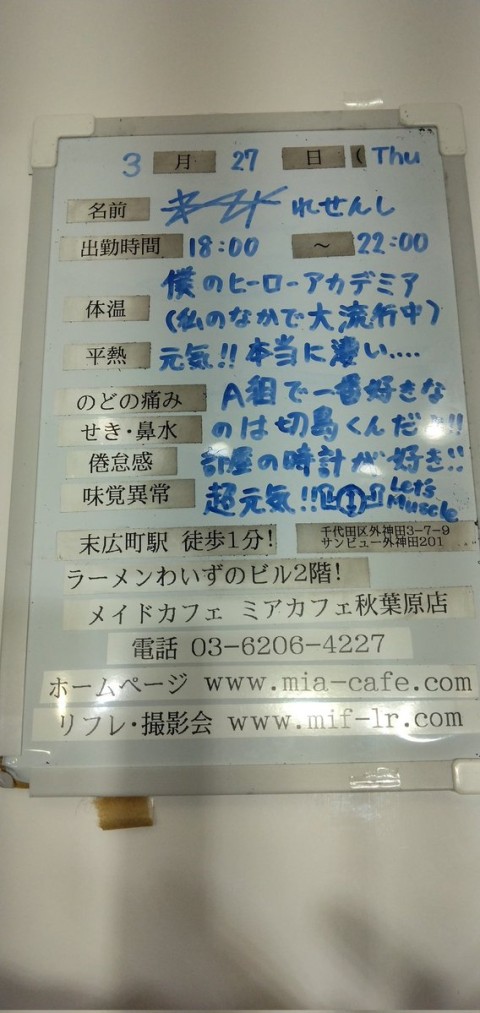 3 月 27 日 ( Thu
名前 れせんし
出勤時間 18:00 ～ 22:00
僕のヒーローアカデミア
体温 (私のなかで大流行中)
平熱 元気!! 本当に凄い....
のどの痛み A組で一番好きな
せき・鼻水 のは切島くんだ!!
倦怠感 部屋の時計が好き!!
味覚異常 超元気!! Let's Muscle
末広町駅 徒歩1分! 千代田区外神田3-7-9
サンビュー外神田201
ラーメンわいずのビル2階!
メイドカフェ ミアカフェ秋葉原店
電話 03-6206-4227
ホームページ www.mia-cafe.com
リフレ・撮影会 www.mif-lr.com